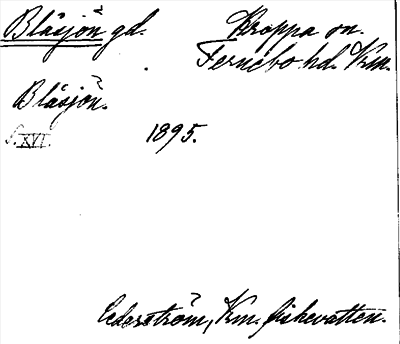 Blåsjön gd. Kroppa sn.
Fernebo hd. Krm.
Blåsjön.
S. XVI. 1895.
Cederström, Krm. fiskevatten.